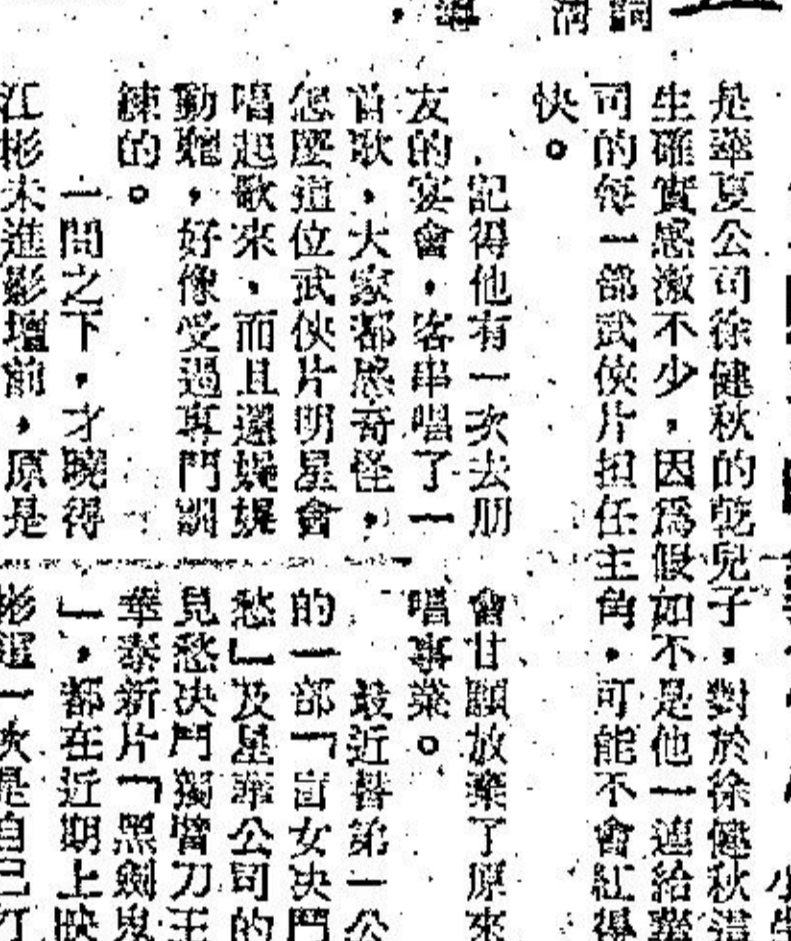 是華夏公司徐健秋的乾兒子，對於徐健秋這
生確實感激不少，因爲假如不是他一連給華
司的每一部武俠片担任主角，可能不會紅得
快。
記得他有一次去朋
友的宴會，客串唱了一
首歌，大家都感奇怪，
怎麼這位武俠片明星會
唱起歌來，而且還娓娓
動聽，好像受過專門訓
練的。
一問之下，才曉得
江彬未進影壇前，原是
會甘願放棄了原來
唱事業。
最近替第一公
的一部「盲女決鬥
愁」及星華公司的
見愁決鬥獨臂刀王
華泰新片「黑劍鬼
」，都在近期上映
彬這一次是自己打